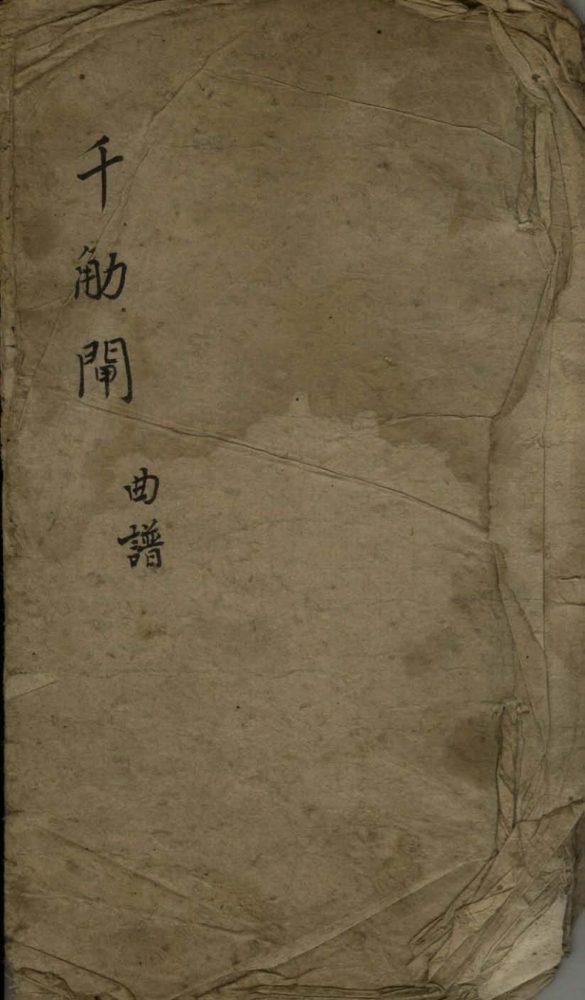 千觔閘
曲譜